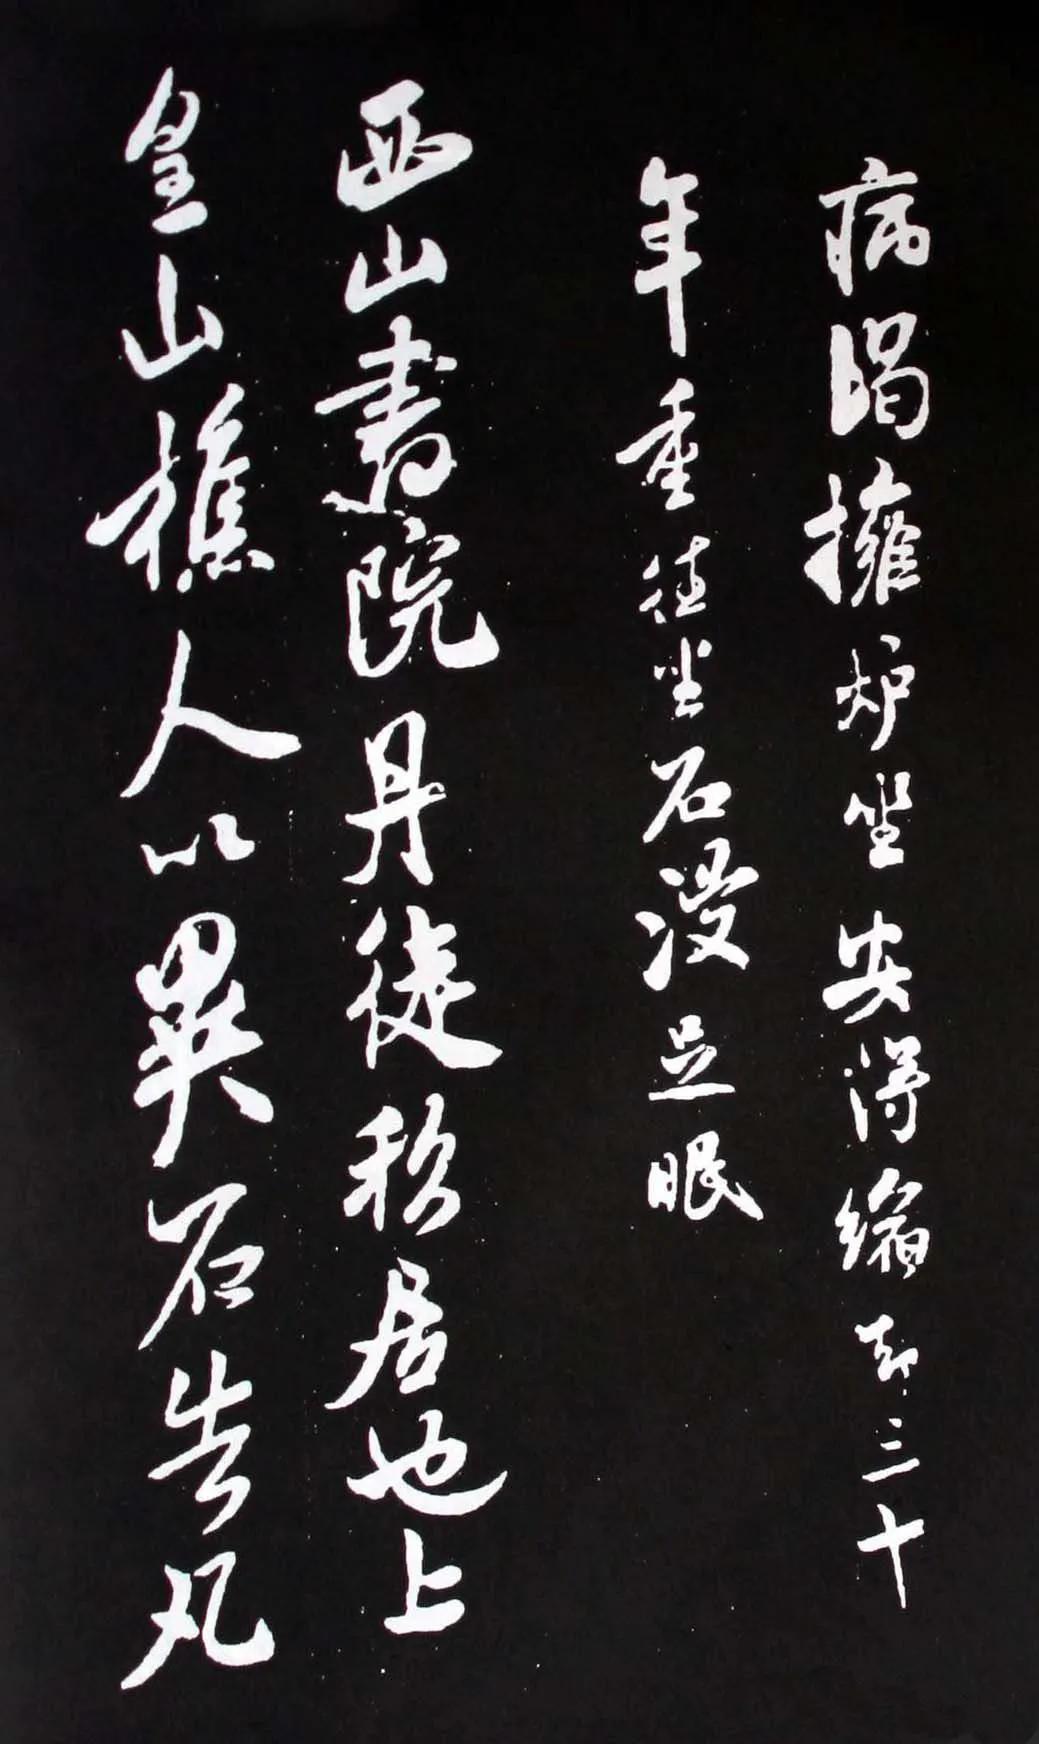 病暍擁炉坐安得縮却三十
年重往坐石浸足眠
西山書院丹徒私居也上
皇山樵人以異石告凡